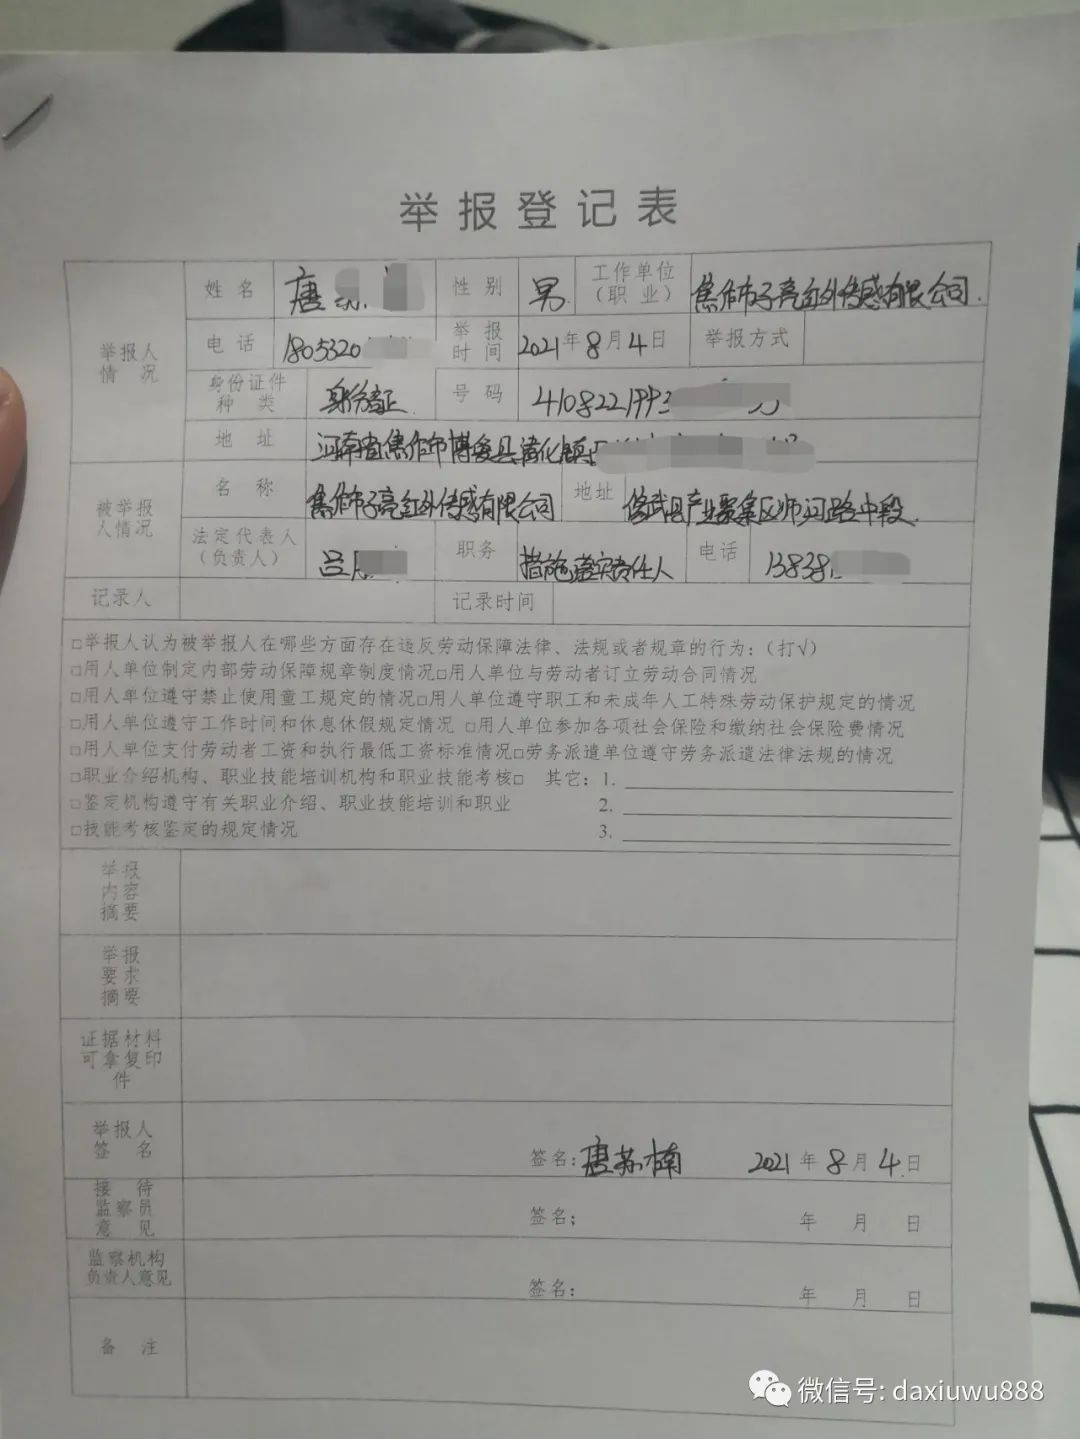 举报登记表
举报人情况 姓名 唐 性别 男 工作单位（职业） 焦作市子亮红外传感有限公司.
电话 1805320 举报时间 2021年8月4日 举报方式
身份证件种类 身份证 号码 4108221993
地址 河南省焦作市博爱县清化镇
被举报人情况 名称 焦作市子亮红外传感有限公司 地址 修武县产业聚集区 河路中段.
法定代表人（负责人） 吕 职务 措施落实责任人 电话 13838
记录人 记录时间
□举报人认为被举报人在哪些方面存在违反劳动保障法律、法规或者规章的行为：（打√）
□用人单位制定内部劳动保障规章制度情况□用人单位与劳动者订立劳动合同情况
□用人单位遵守禁止使用童工规定的情况□用人单位遵守职工和未成年人工特殊劳动保护规定的情况
□用人单位遵守工作时间和休息休假规定情况 □用人单位参加各项社会保险和缴纳社会保险费情况
□用人单位支付劳动者工资和执行最低工资标准情况□劳务派遣单位遵守劳务派遣法律法规的情况
□职业介绍机构、职业技能培训机构和职业技能考核□ 其它：1.
□鉴定机构遵守有关职业介绍、职业技能培训和职业 2.
□技能考核鉴定的规定情况 3.
举报内容摘要
举报要求摘要
证据材料可拿复印件
举报人签名 签名：唐苏楠 2021年8月4日
接待监察员意见 签名； 年 月 日
监察机构负责人意见 签名： 年 月 日
备注
微信号: daxiuwu888